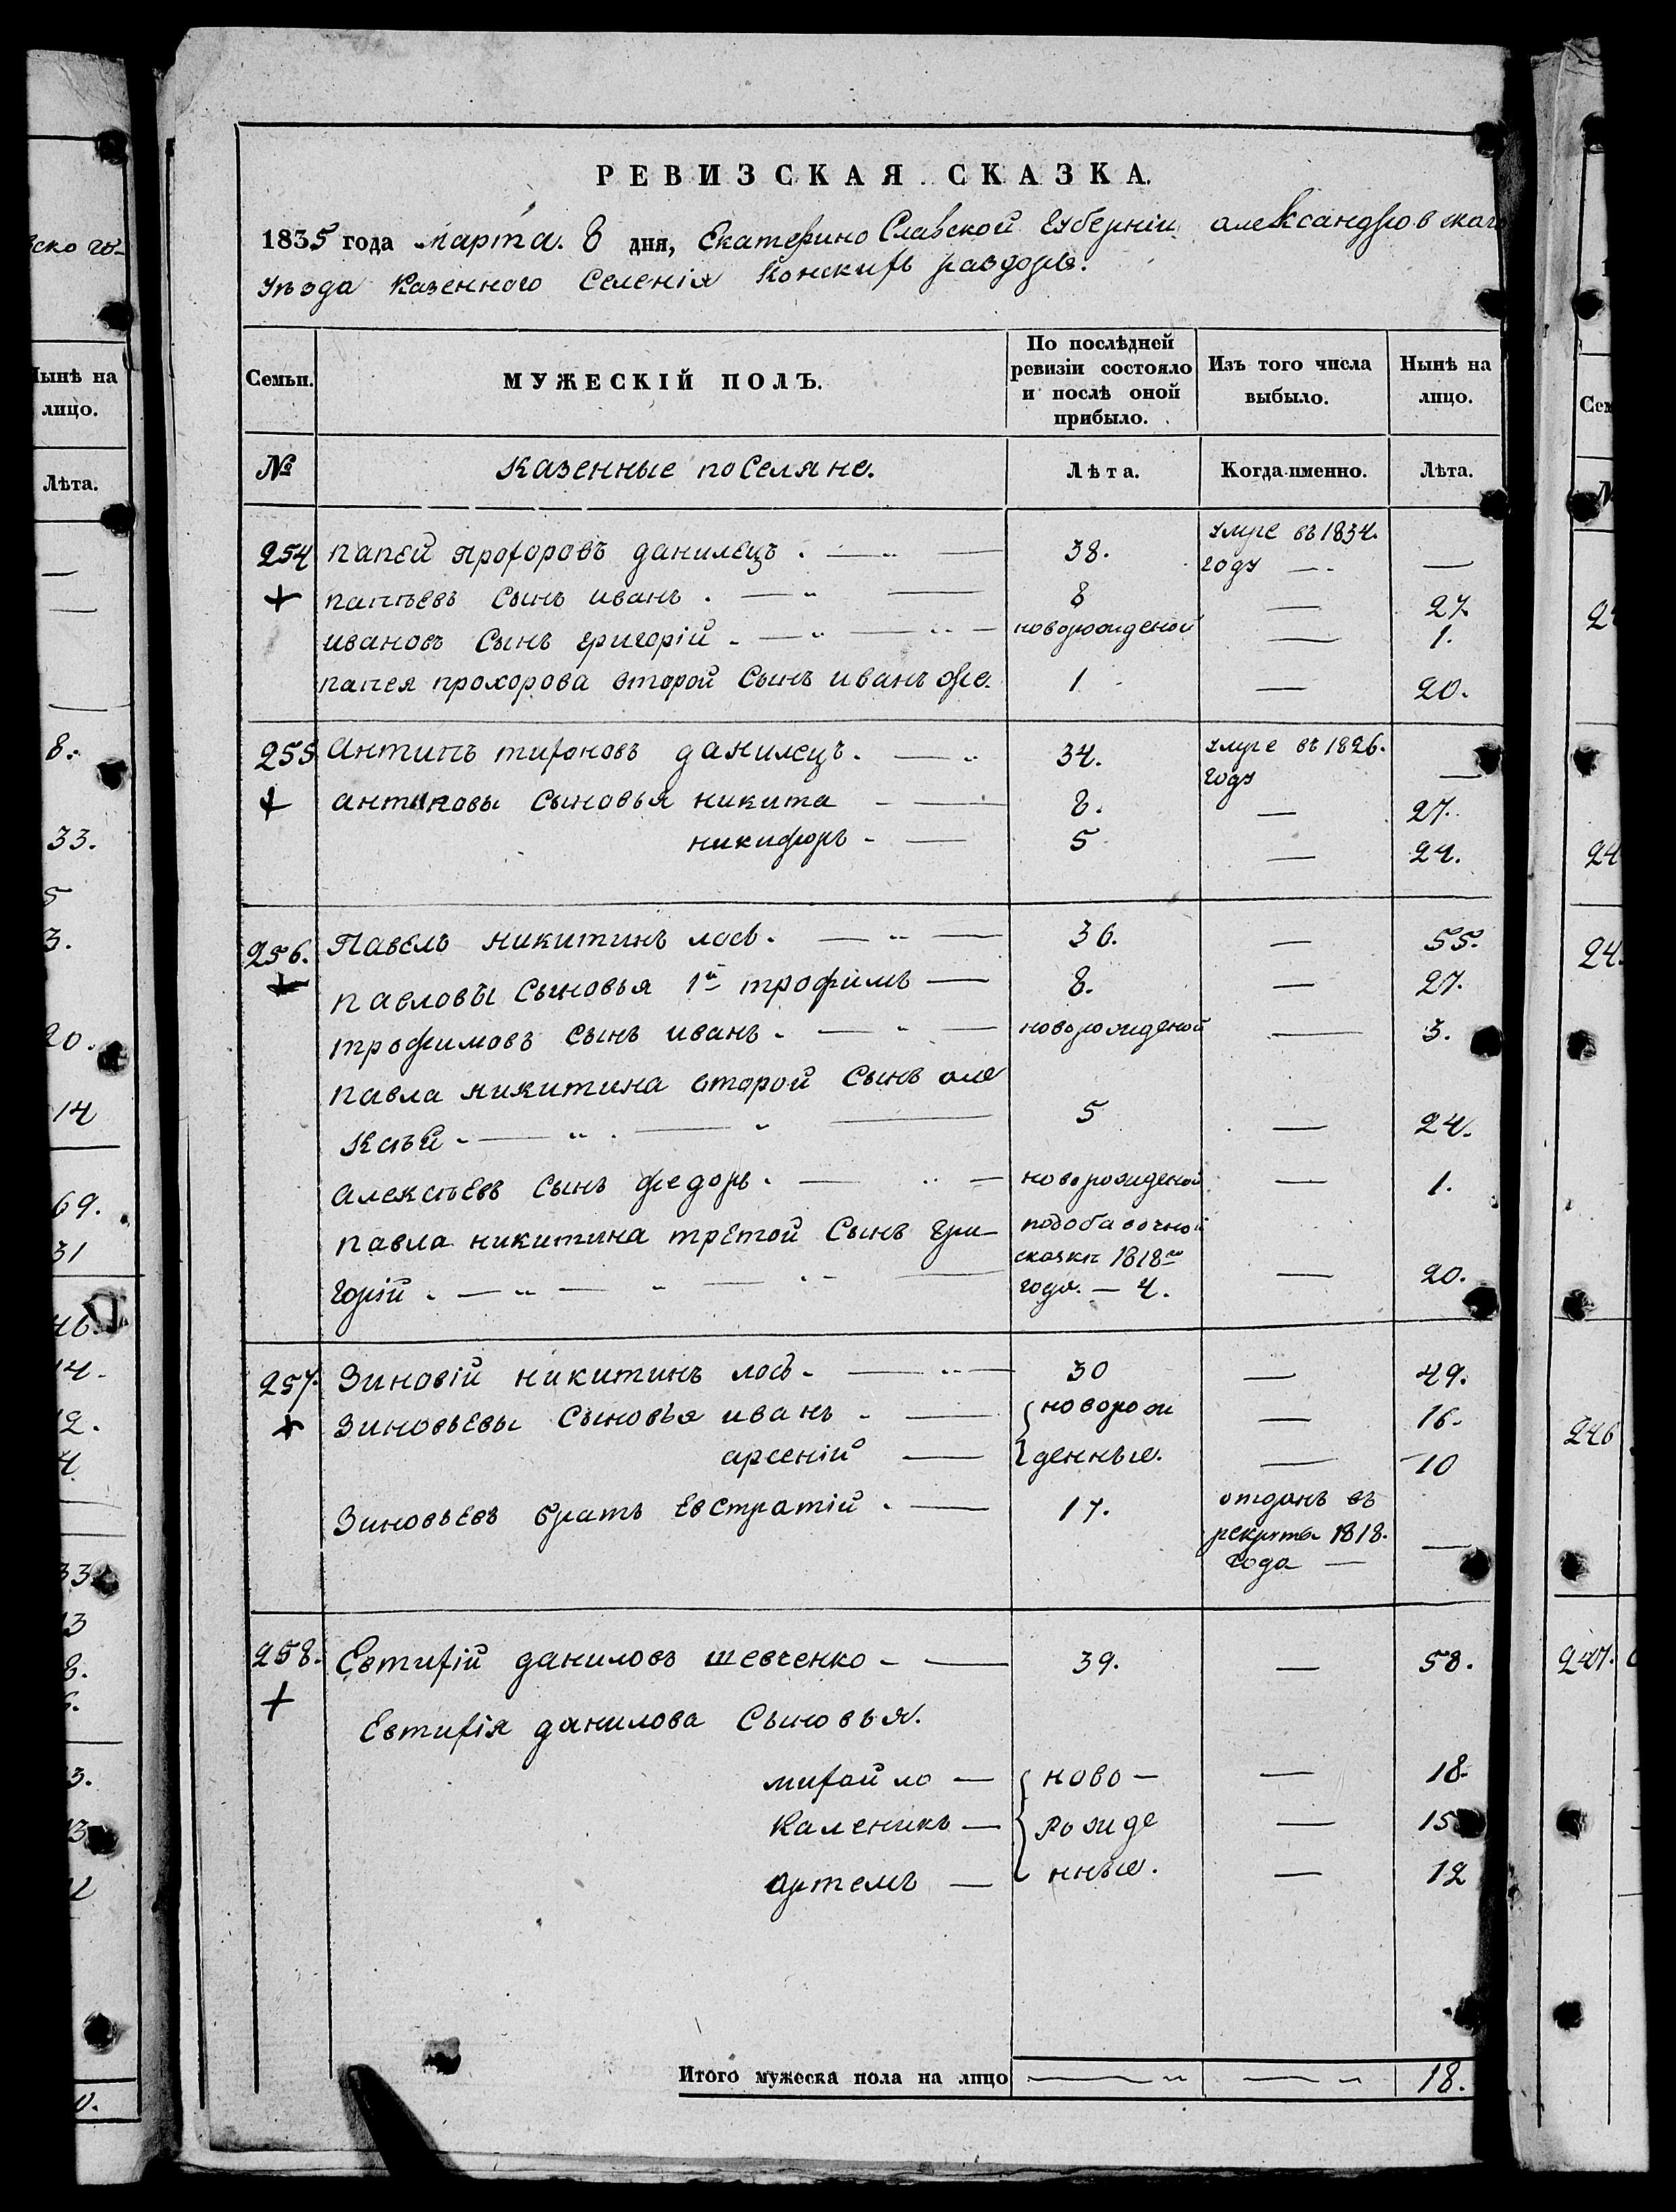 РЕВИЗСКАЯ СКАЗКА.
1835 года марта. 8 дня, Екатерино Славской Губерніи александровскаго
уъзда Казенного Селенія Конскихъ раздоръ.
Семьи. МУЖЕСКІЙ ПОЛЪ. По послѣдней ревизіи состояло и послѣ оной прибыло. Изъ того числа выбыло. Нынѣ на лицо.
№ Казенные поСеляне. Лѣта. Когда именно. Лѣта.
254 папей прохоровъ данилецъ . — 38. умре въ 1834. году — —
+ папъевъ Сынъ иванъ . — 8 — 27.
ивановъ Сынъ григорій . — новорожденой — 1.
папея прохорова второй Сынъ иванъ же. 1 — 20.
255 антипъ тихоновъ данилецъ . — 34. умре въ 1826. году —
+ антиповы Сыновья никита — 8. — 27.
никифоръ — 5 — 24.
256. Павелъ никитинъ лось . — 36. — 55.
+ павловы Сыновья 1й трофимъ — 8. — 27.
трофимовъ Сынъ иванъ . — новорожденой — 3.
павла никитина второй Сынъ але
Ксъй — 5 — 24.
алексъевъ Сынъ федоръ . — новорожденой — 1.
павла никитина третой Сынъ гри—
горій . — подобавочной сказки 1818го года. — 4. — 20.
257. Зиновій никитинъ лось . — 30 — 49.
+ Зиновьевы Сыновья иванъ . — новорож — 16.
арсеній — денные. — 10
Зиновьевъ братъ Евстратій . — 17. отданъ въ рекруты 1818. года — —
258. Евтихій даниловъ шевченко — 39. — 58.
+ Евтихія данилова Сыновья.
михайло — ново — — 18.
Каленикъ — рожде — 15
артемъ — нные. — 12
Итого мужеска пола на лицо — — 18.
ско го
Нынѣ на
лицо.
Лѣта.
8.
33.
5
3.
20.
14
69.
31